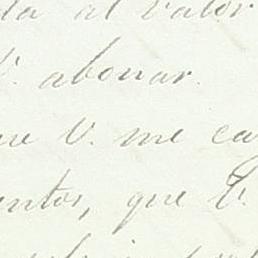 da al valor
V. abonar.
ue V. me ca
entos, que V.